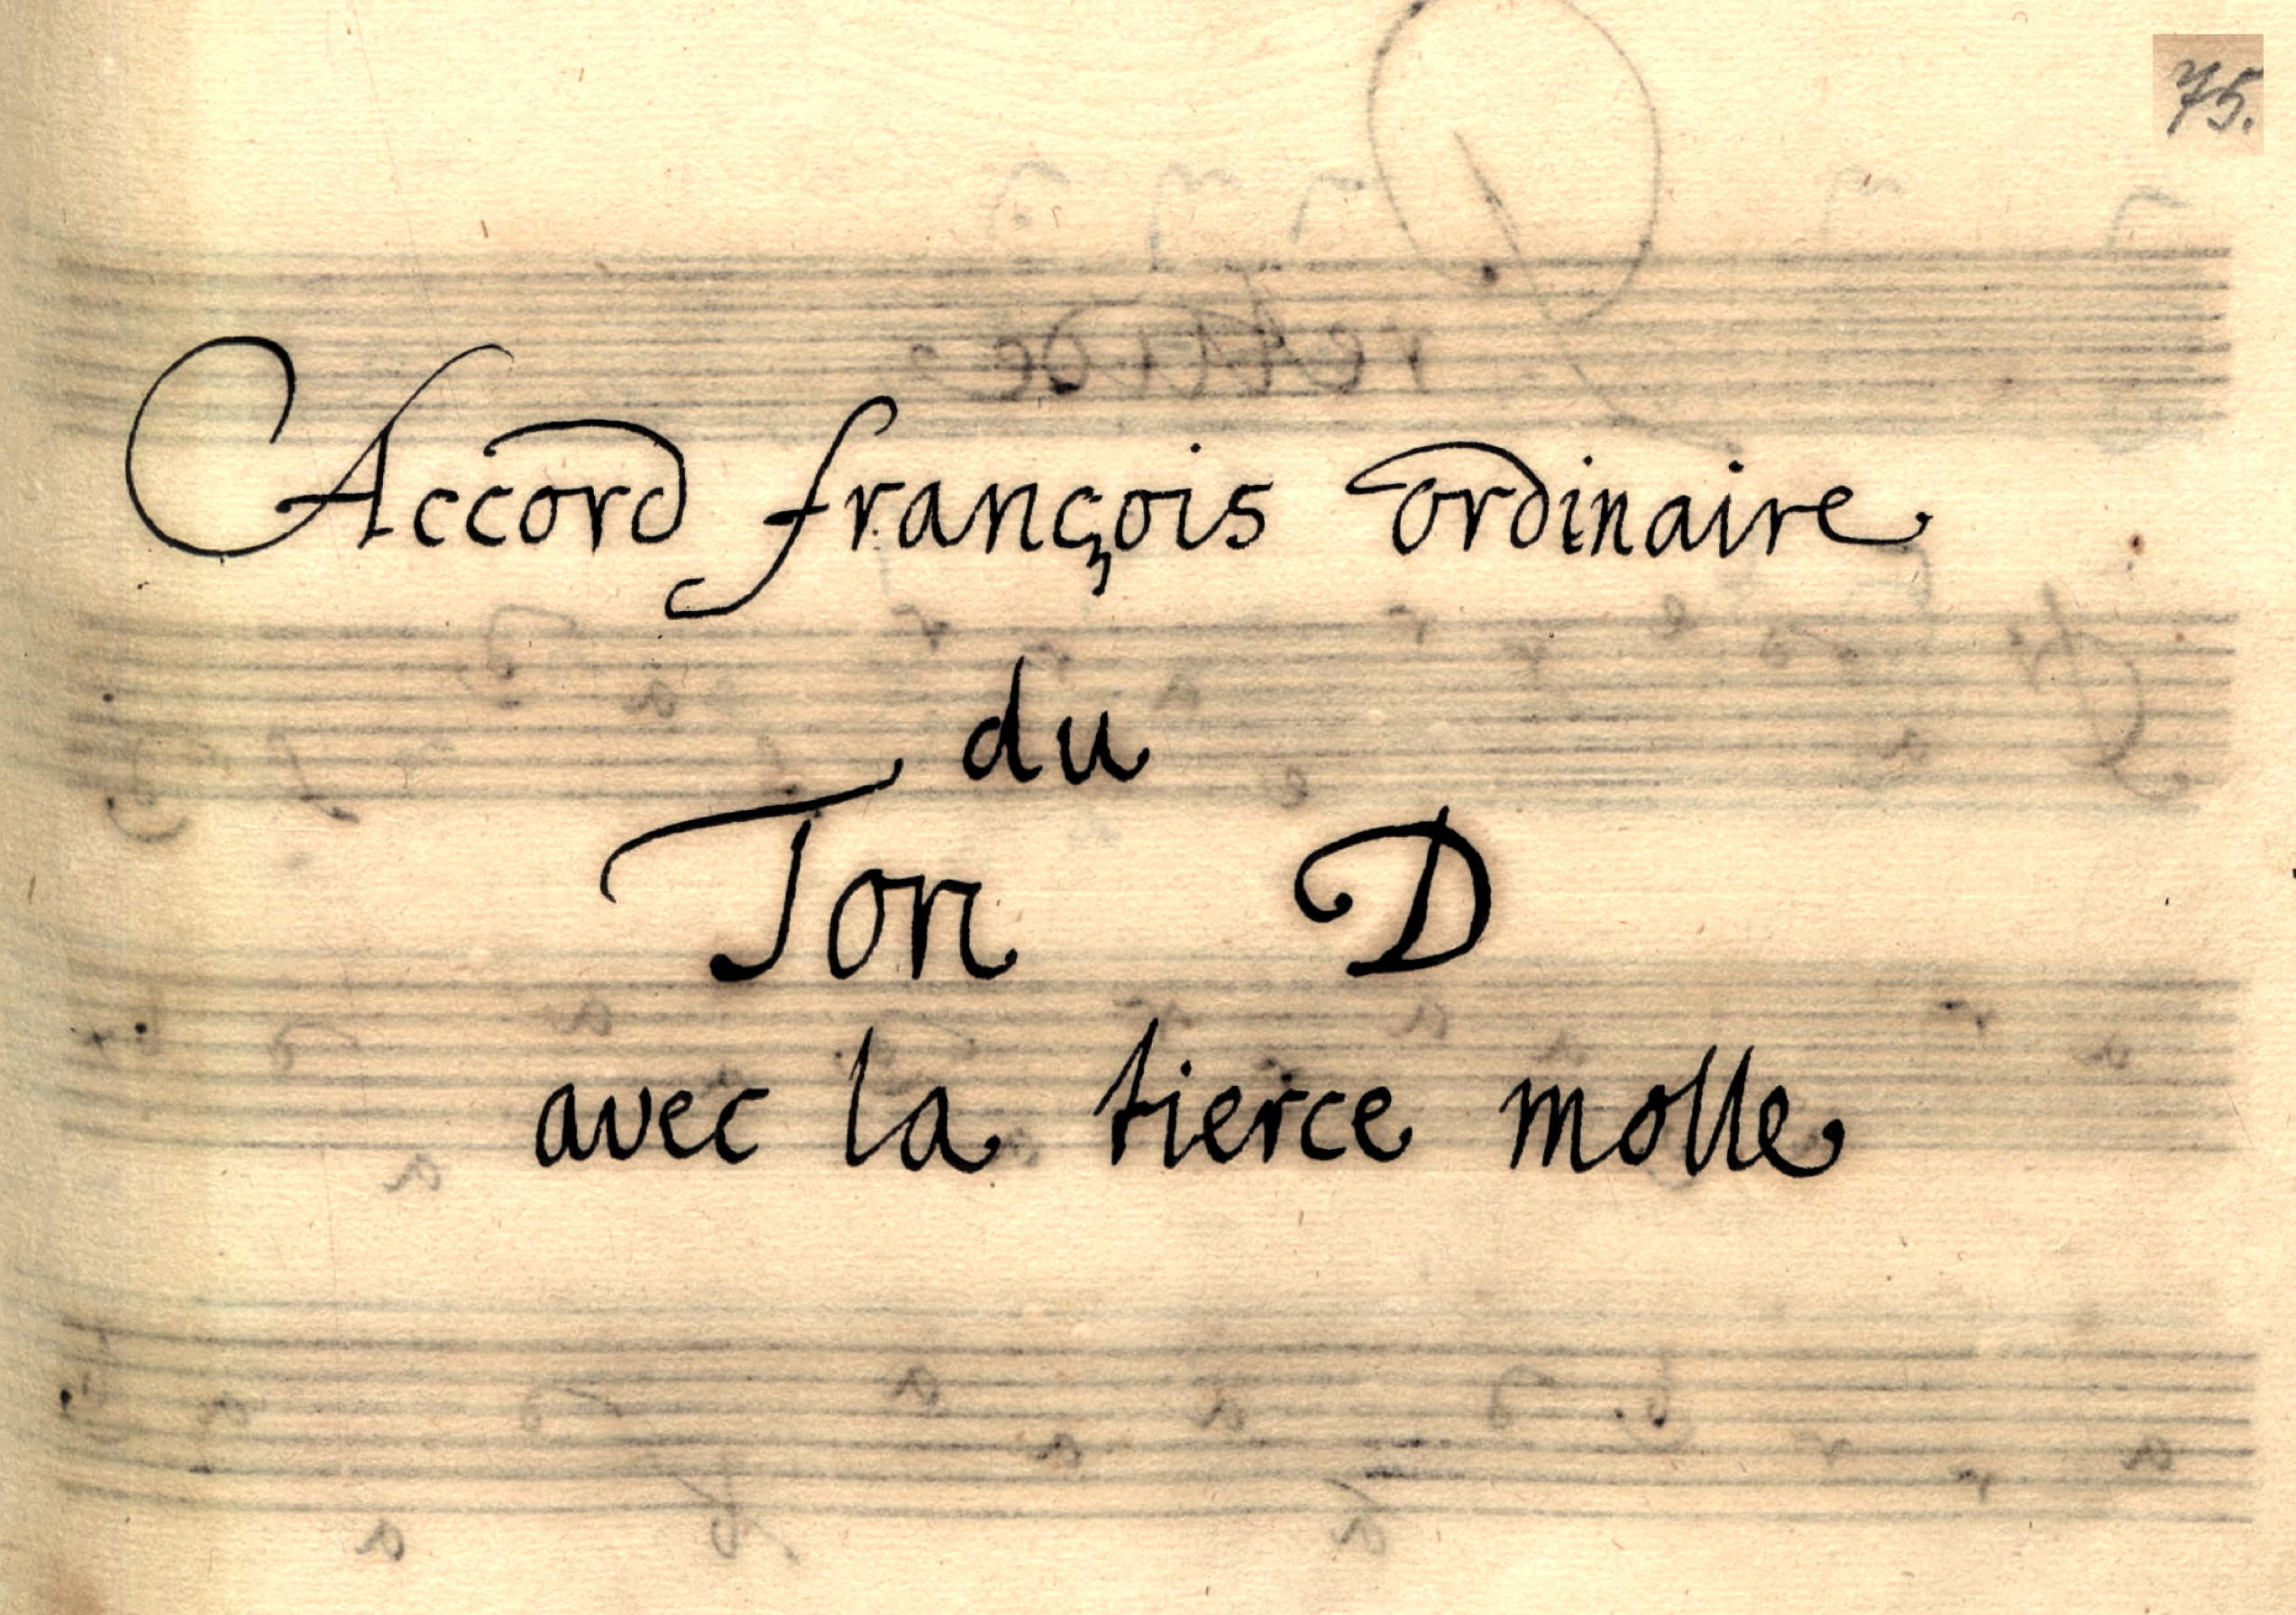 75.
Accord françois ordinaire
du
Ton D
avec la tierce molle